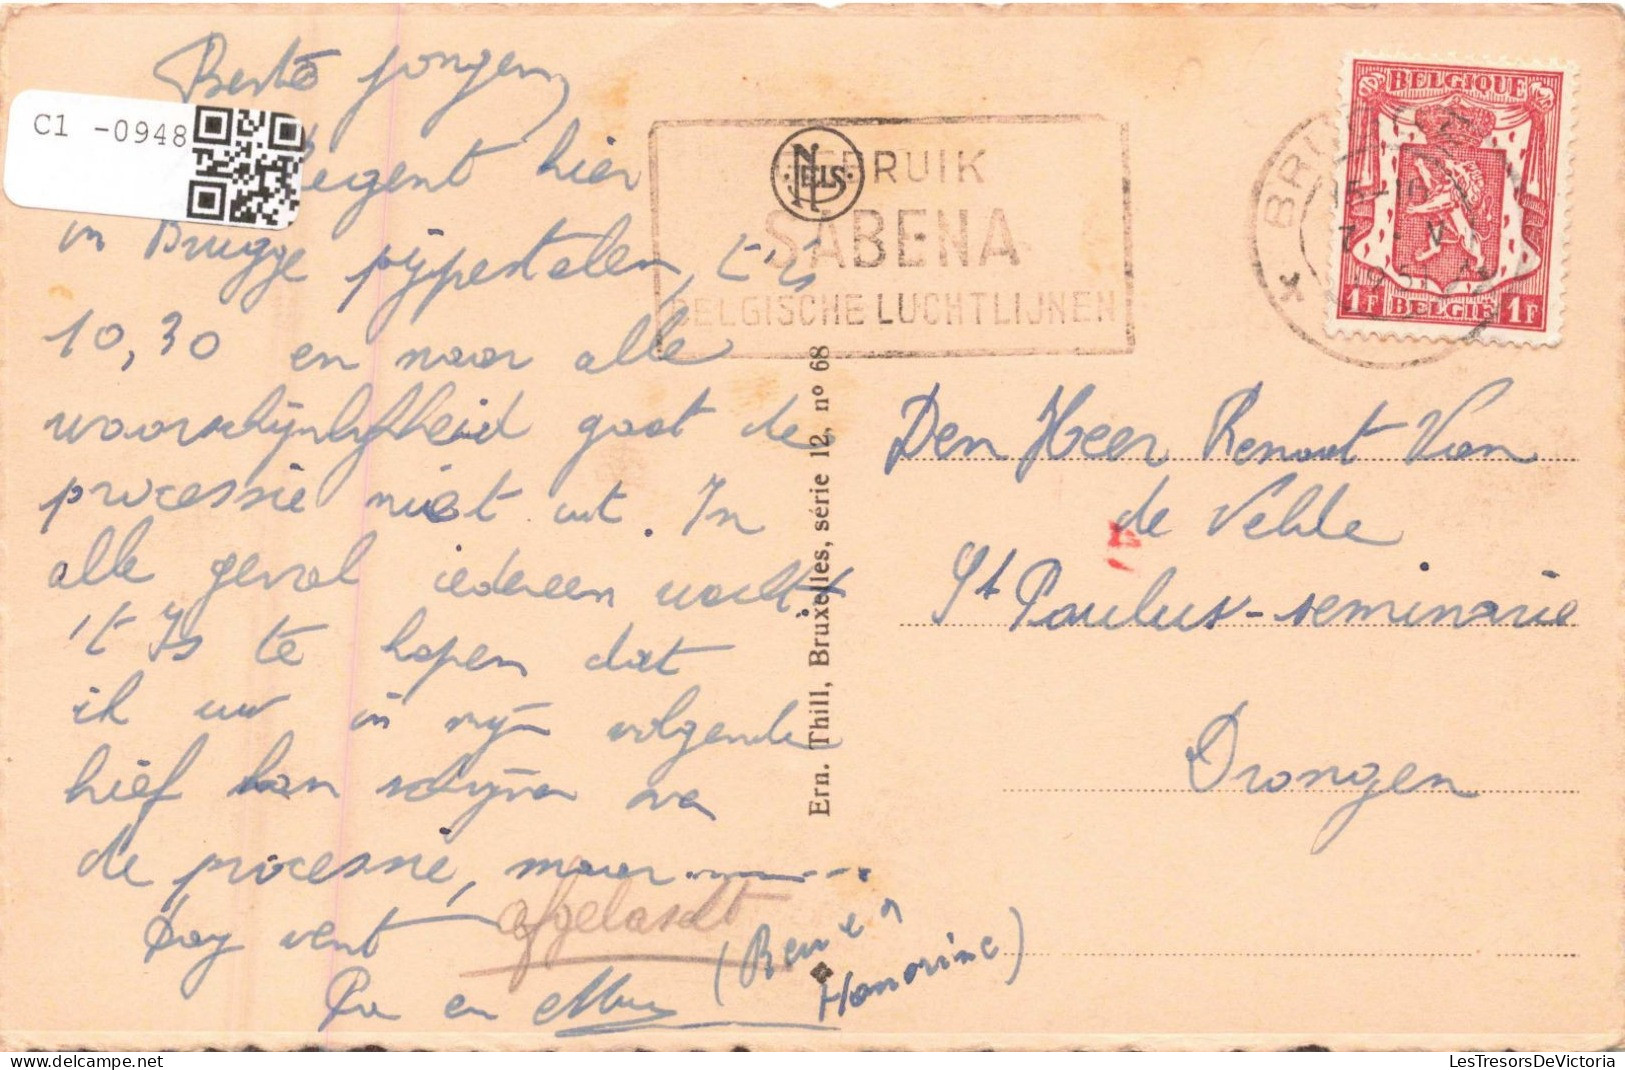 Beste jongen
regent hier
in Brugge pijpestelen, 't is
10,30 en naar alle
waarschijnlijkheid gaat de
processie niet uit. In
alle geval iedereen wacht
't Is te hopen dat
ik uw in mijn volgende
brief kan schrijven over
de processie, maar ........
afgelast
Dag vent
Pa en Moe (René en
Honorine)
C1 -0948
NELS
GEBRUIK
SABENA
BELGISCHE LUCHTLIJNEN
Ern. Thill, Bruxelles, série 12, nº 68
BELGIQUE
1F BELGIE 1F
15-16
7 - V
1951
Den Heer Renaat Van
de Velde
St Paulus-seminarie
Drongen
LesTresorsDeVictoria